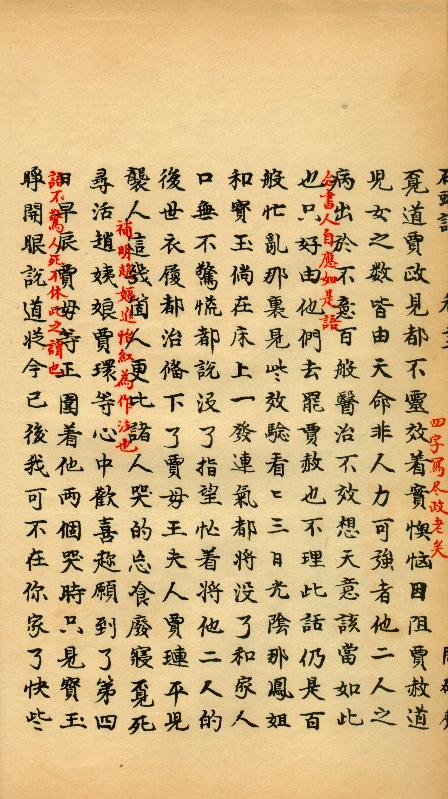 覔道賈政見都不靈效着實懊惱因阻賈赦道
児女之數皆由天命非人力可強者他二人之
病出於不意百般醫治不效想天意該當如此
也只好由他們去罷賈赦也不理此話仍是百
般忙亂那裏見些效驗看〻三日光陰那鳳姐
和寳玉倘在床上一發連氣都将没了和家人
口無不驚慌都說没了指望忙着将他二人的
後世衣履都治偹下了賈母王夫人賈璉平児
襲人這幾個人更比諸人哭的忘食廢寢覔死
尋活趙姨娘賈環等心中歡喜趂願到了第四
日早辰賈母等正圍着他両個哭時只見寳玉
睜開眼說道從今已後我可不在你家了快些
四字寫尽政老矣
念書人自應如是語
補明趙嫗進怡紅為作法也
語不驚人死不休此之謂也